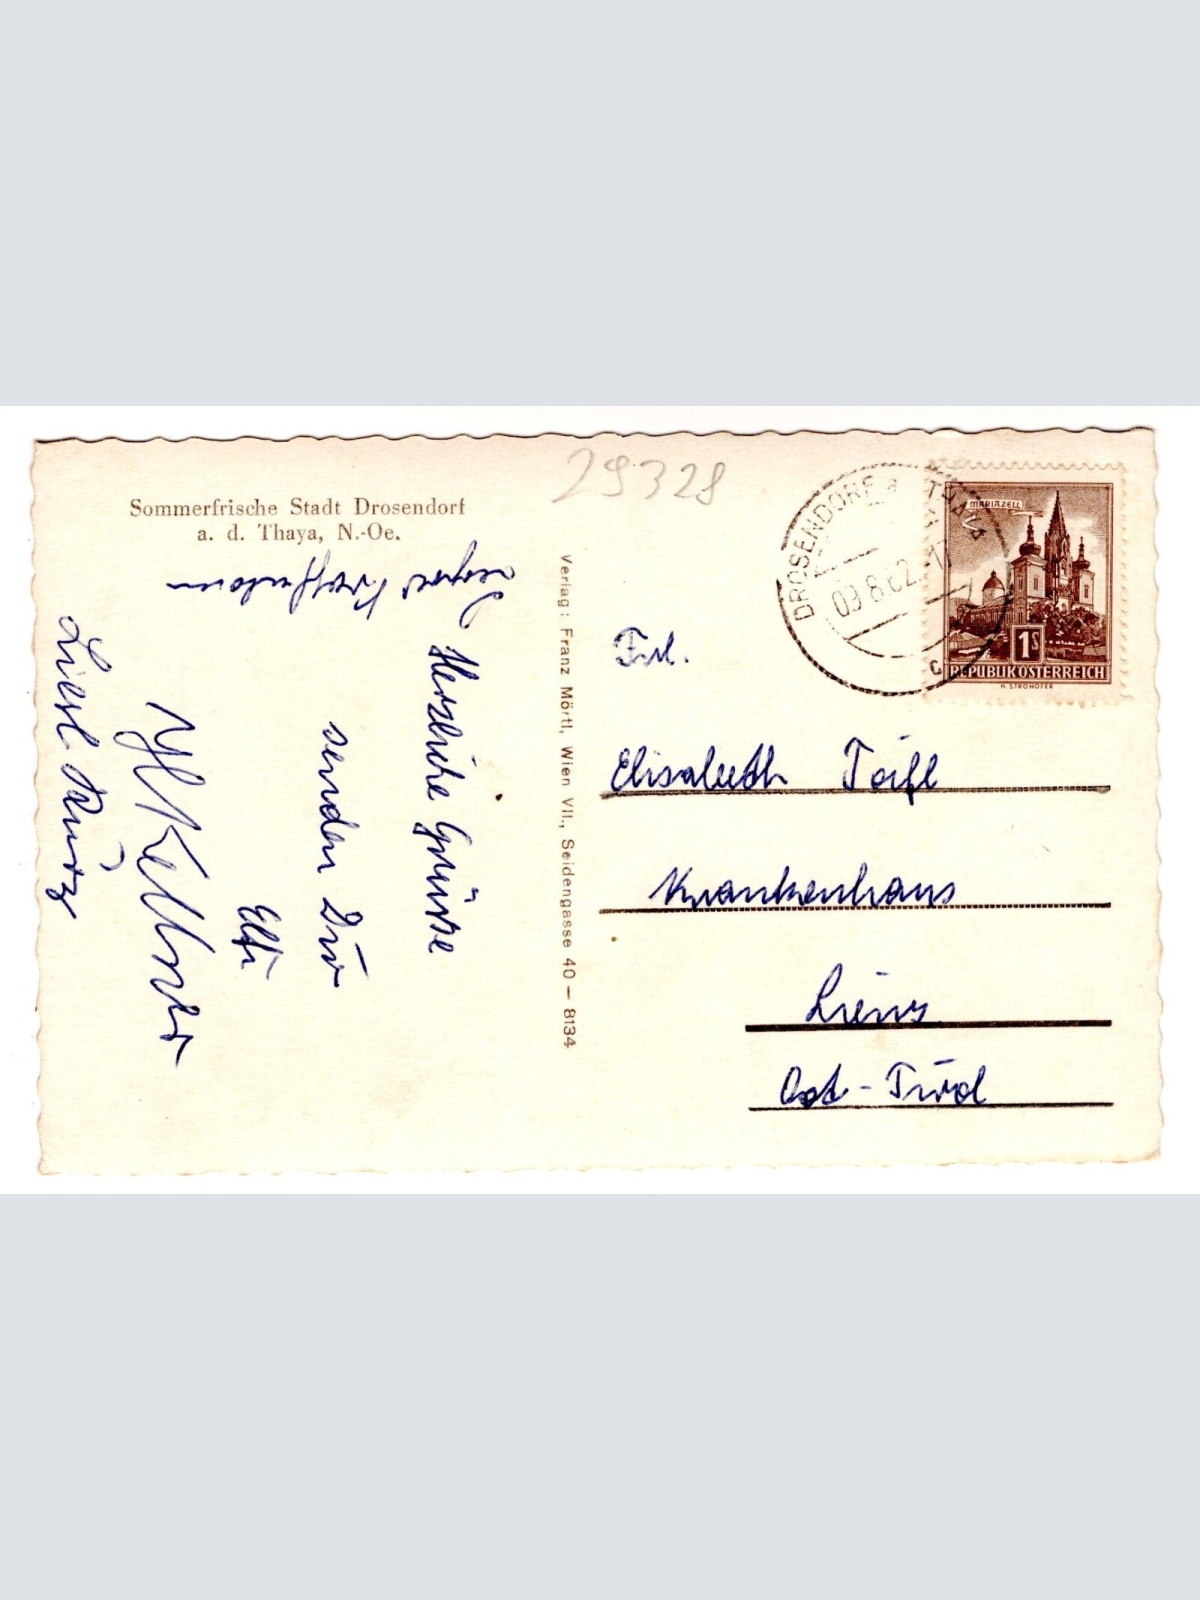 29328
Sommerfrische Stadt Drosendorf
a. d. Thaya, N.-Oe.
Herzliche Grüsse
senden Dir
Elfi
Liesl
Verlag: Franz Mörtl, Wien VII., Seidengasse 40 — 8134
DROSENDORF a. d. THAYA
09.8.62
c
MARIAZELL
1S
REPUBLIK ÖSTERREICH
H. STROHOFER
Frl.
Elisabeth Toifl
Krankenhaus
Lienz
Ost - Tirol